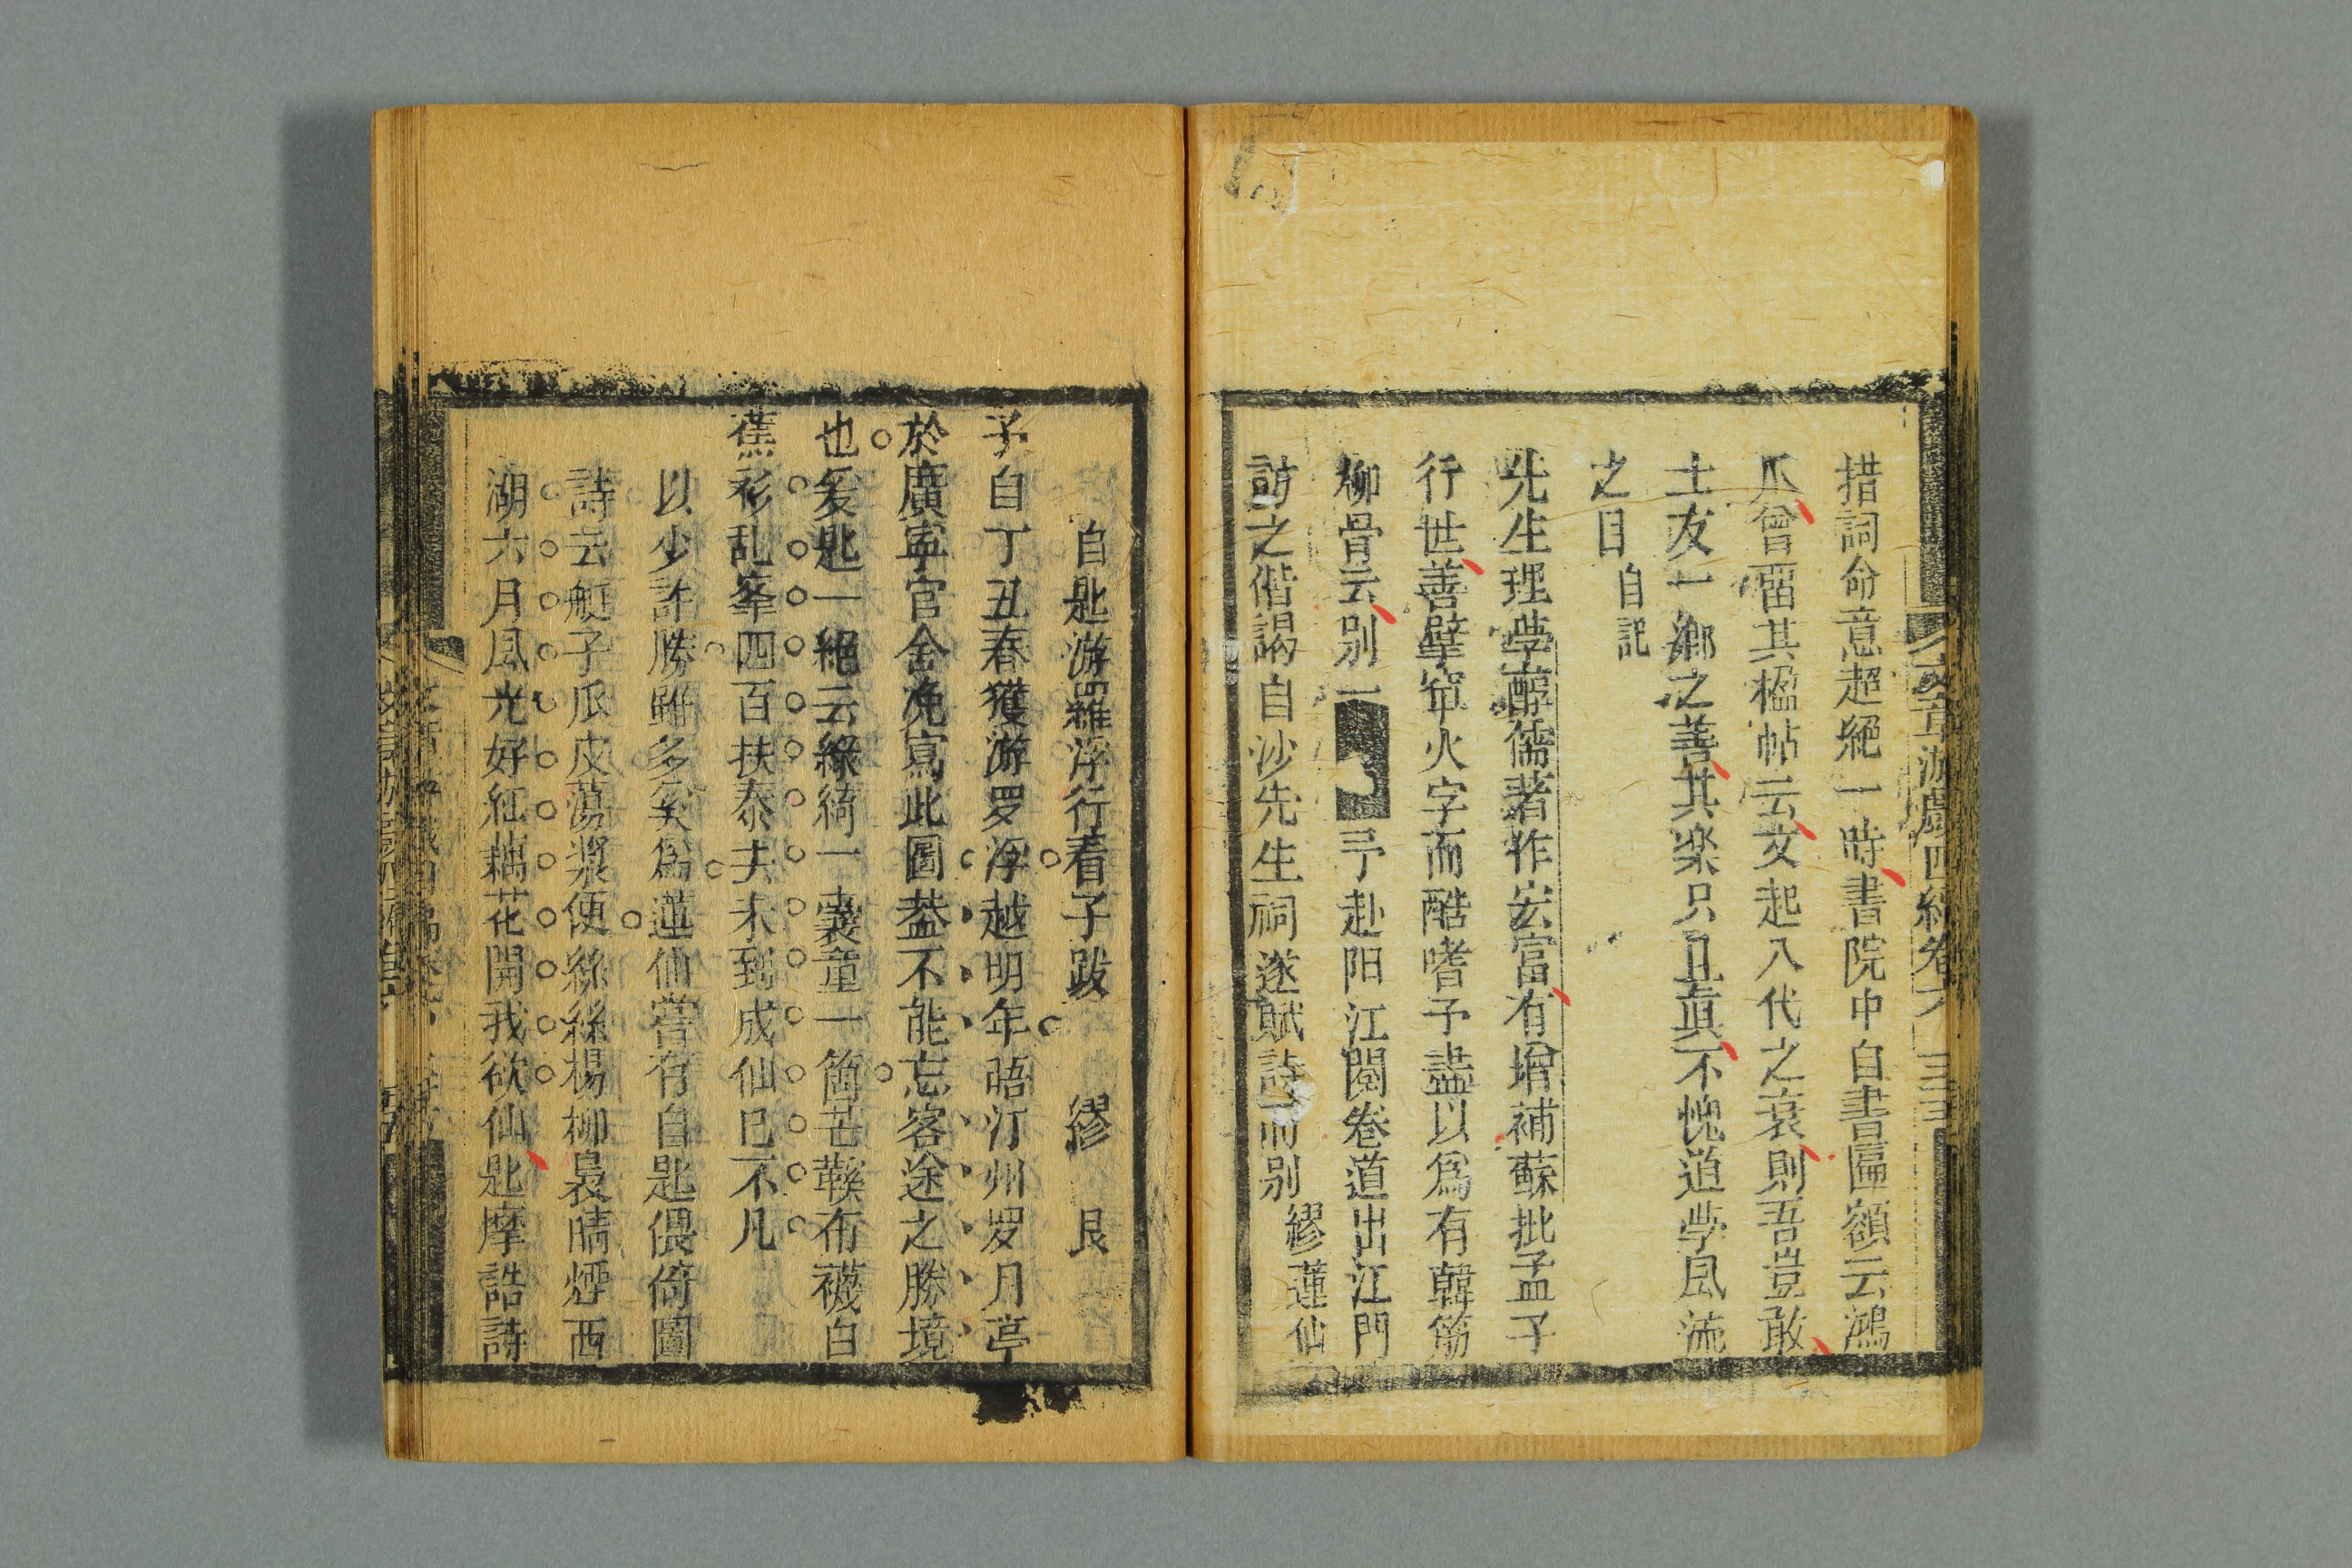 文章游戲四編卷六
三三
措詞命意超絕一時書院中自書匾額云鴻
爪曾畱其楹帖云文起八代之衰則吾豈敢
士友一鄉之善其楽只且真不愧道學風流
之目自記
先生理學醇儒著作宏富有增補蘇批孟子
行世善擘窠火字而酷嗜予畫以為有韓筋
柳骨云別一
予赴阳江閱卷道出江門
訪之偕謁白沙先生祠遂賦詩而别繆蓮仙
自題游羅浮行看子跋 繆艮
予自丁丑春獲游罗浮越明年晤汀州罗月亭
於廣寧官舍免寫此圖葢不能忘客途之勝境
也爰題一絕云綠綺一囊童一箇芒鞵布襪白
蕉衫乱峯四百扶泰去未到成仙已不凡
以少許勝雖多矣為蓮仙嘗有自題偎倚圖
詩云艇子瓜皮蕩槳便絲絲楊柳裊晴煙西
湖六月風光好紅藕花開我欲仙題摩詰詩